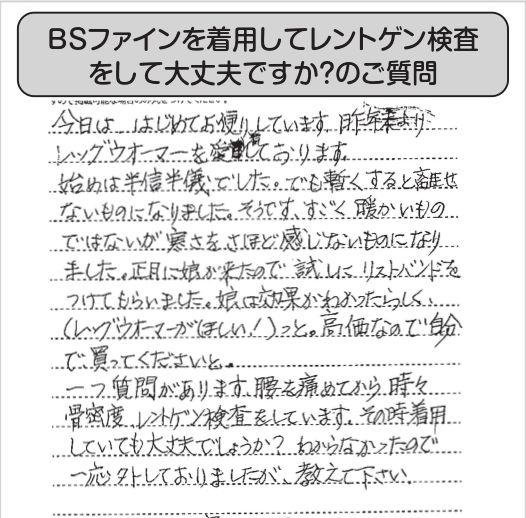 BSファインを着用してレントゲン検査
をして大丈夫ですか?のご質問
今日は、はじめてお便りしています。昨年末より
レッグウオーマーを愛用しております。
始めは半信半儀でした。でも暫くすると離せ
ないものになりました。そうです、すごく暖かいもの
ではないが寒さをさほど感じないものになり
ました。正月に娘が来たので試しにリストバンドを
つけてもらいました。娘は効果がわかったらしく、
(レッグウオーマーがほしい!)っと。高価なので自分
で買ってくださいと。
一つ質問があります。腰を痛めてから時々
骨密度、レントゲン検査をしています。その時着用
していても大丈夫でしょうか?わからなかったので
一応外しておりましたが、教えて下さい。